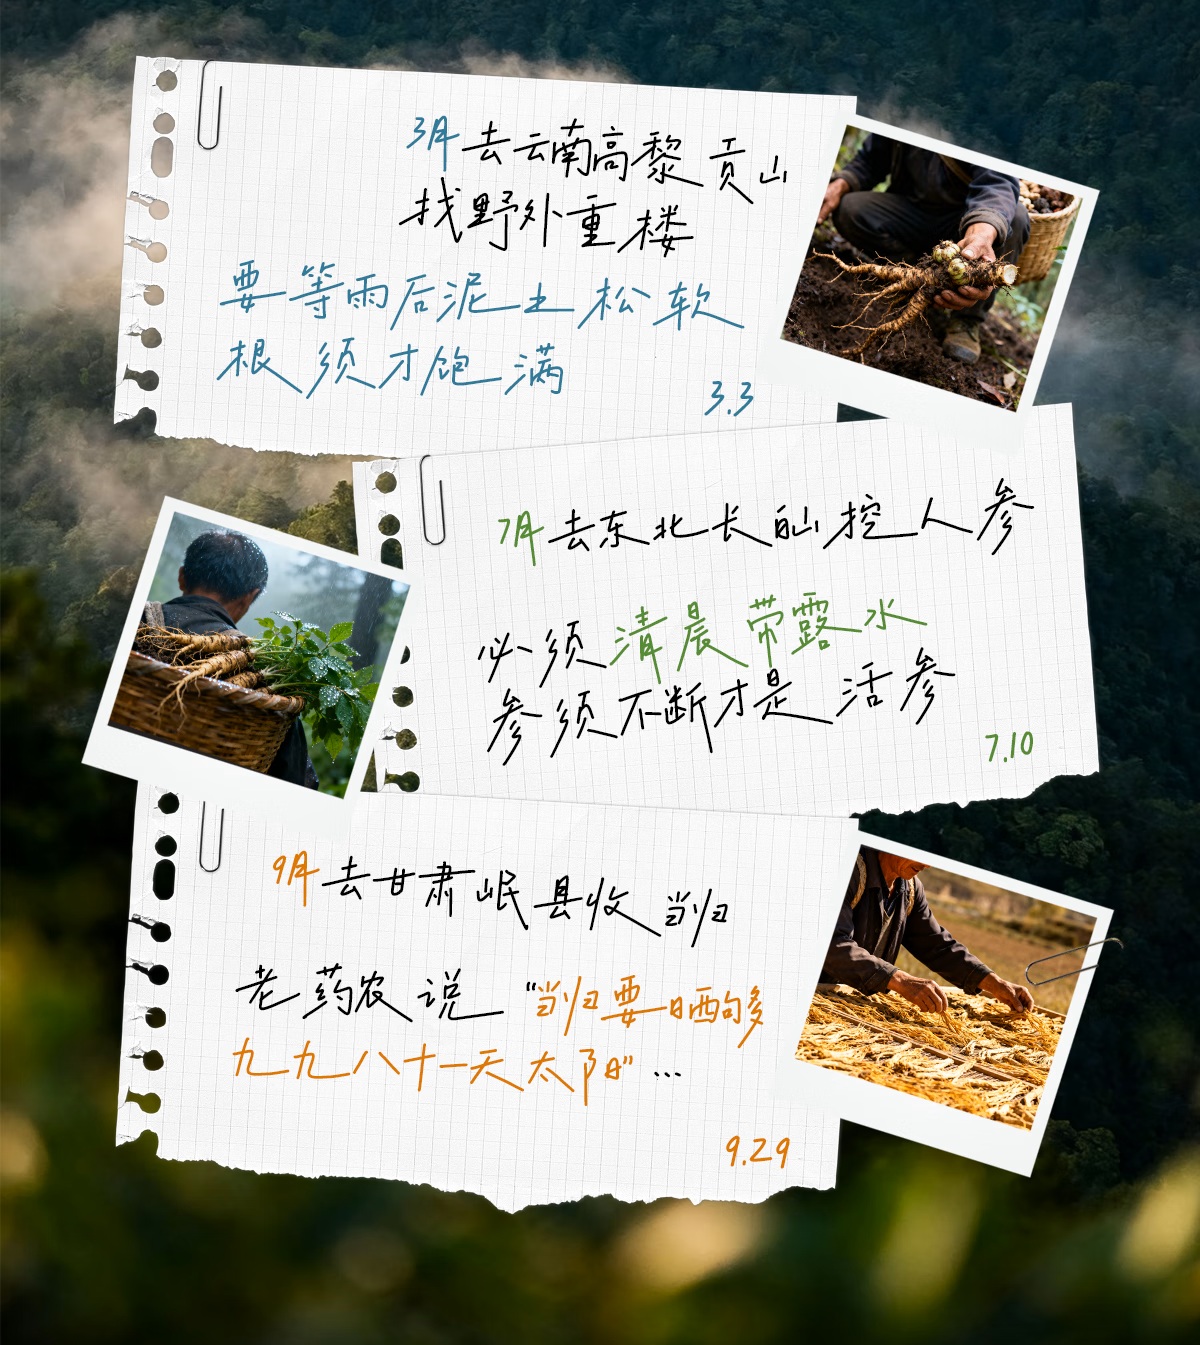 3月去云南高黎贡山
找野外重楼
要等雨后泥土松软
根须才饱满
3.3
7月去东北长白山挖人参
必须清晨带露水
参须不断才是活参
7.10
9月去甘肃岷县收当归
老药农说“当归要晒够
九九八十一天太阳”…
9.29